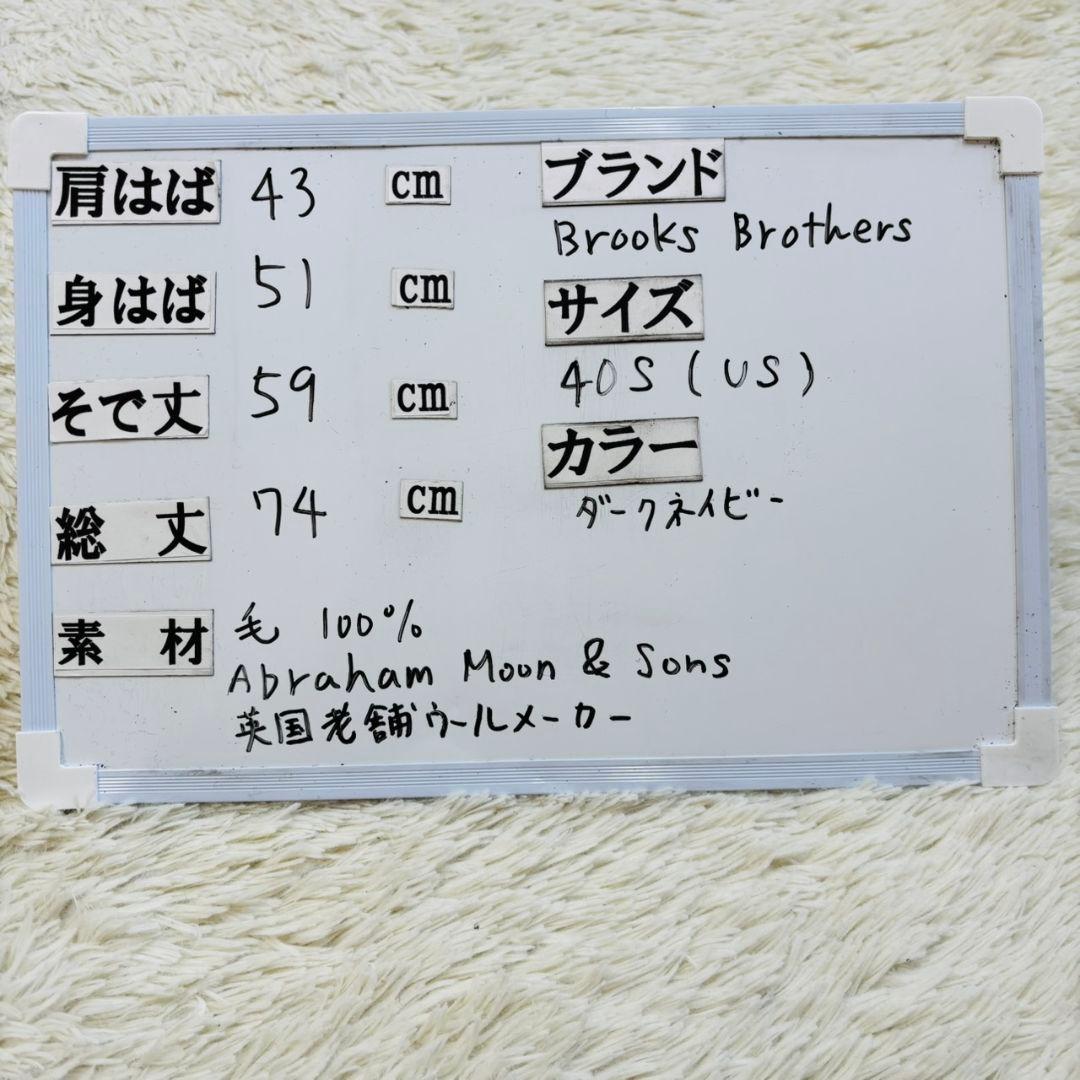 肩はば 43 cm
身はば 51 cm
そで丈 59 cm
総丈 74 cm
素材 毛 100%
Abraham Moon & Sons
英国老舗ウールメーカー
ブランド
Brooks Brothers
サイズ
40S (US)
カラー
ダークネイビー